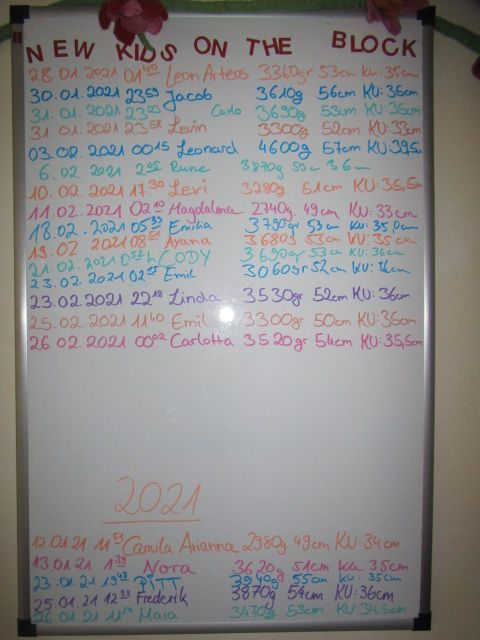 NEW KIDS ON THE BLOCK
28.01.2021 01⁴⁰ Leon Arteos 3360gr 53cm KU: 35cm
30.01.2021 23⁵⁹ Jacob 3610g 56cm KU: 36cm
31.01.2021 23²⁰ Carlo 3690g 53cm KU: 36cm
31.01.2021 23⁵⁸ Levin 3300g 52cm KU: 33cm
03.02.2021 00¹⁵ Leonard 4600g 57cm KU: 39,5cm
6.02.2021 2⁰⁵ Rune 3870g 53cm 36cm
10.02.2021 17³⁰ Levi 3280g 51cm KU: 35,5cm
11.02.2021 02¹⁰ Magdalena 2740g 49cm KU: 33cm
18.02.2021 05³³ Emilia 3790gr 53cm KU: 35,0cm
19.02.2021 08⁵² Ayana 3680g 53cm KU: 35cm
21.02.2021 CODY 3690gr 53cm KU: 36cm
23.02.2021 02⁴⁵ Emil 3060gr 52cm KU:
23.02.2021 22¹⁸ Linda 3530g 52cm KU: 36cm
25.02.2021 11⁴⁰ Emil 3300g 50cm KU: 36cm
26.02.2021 00⁰² Carlotta 3520gr 54cm KU: 35,5cm
2021
12.01.21 11⁵¹ Camila Arianna 2980g 49cm KU: 34cm
13.01.21 1³⁹ Nora 3620g 51cm KU: 35cm
23.01.21 19⁴² PiTT 3940g 55cm KU: 35cm
25.01.21 12³³ Frederik 3870g 54cm KU: 36cm
26.01.21 Maia 3470g 53cm KU: 34,5cm